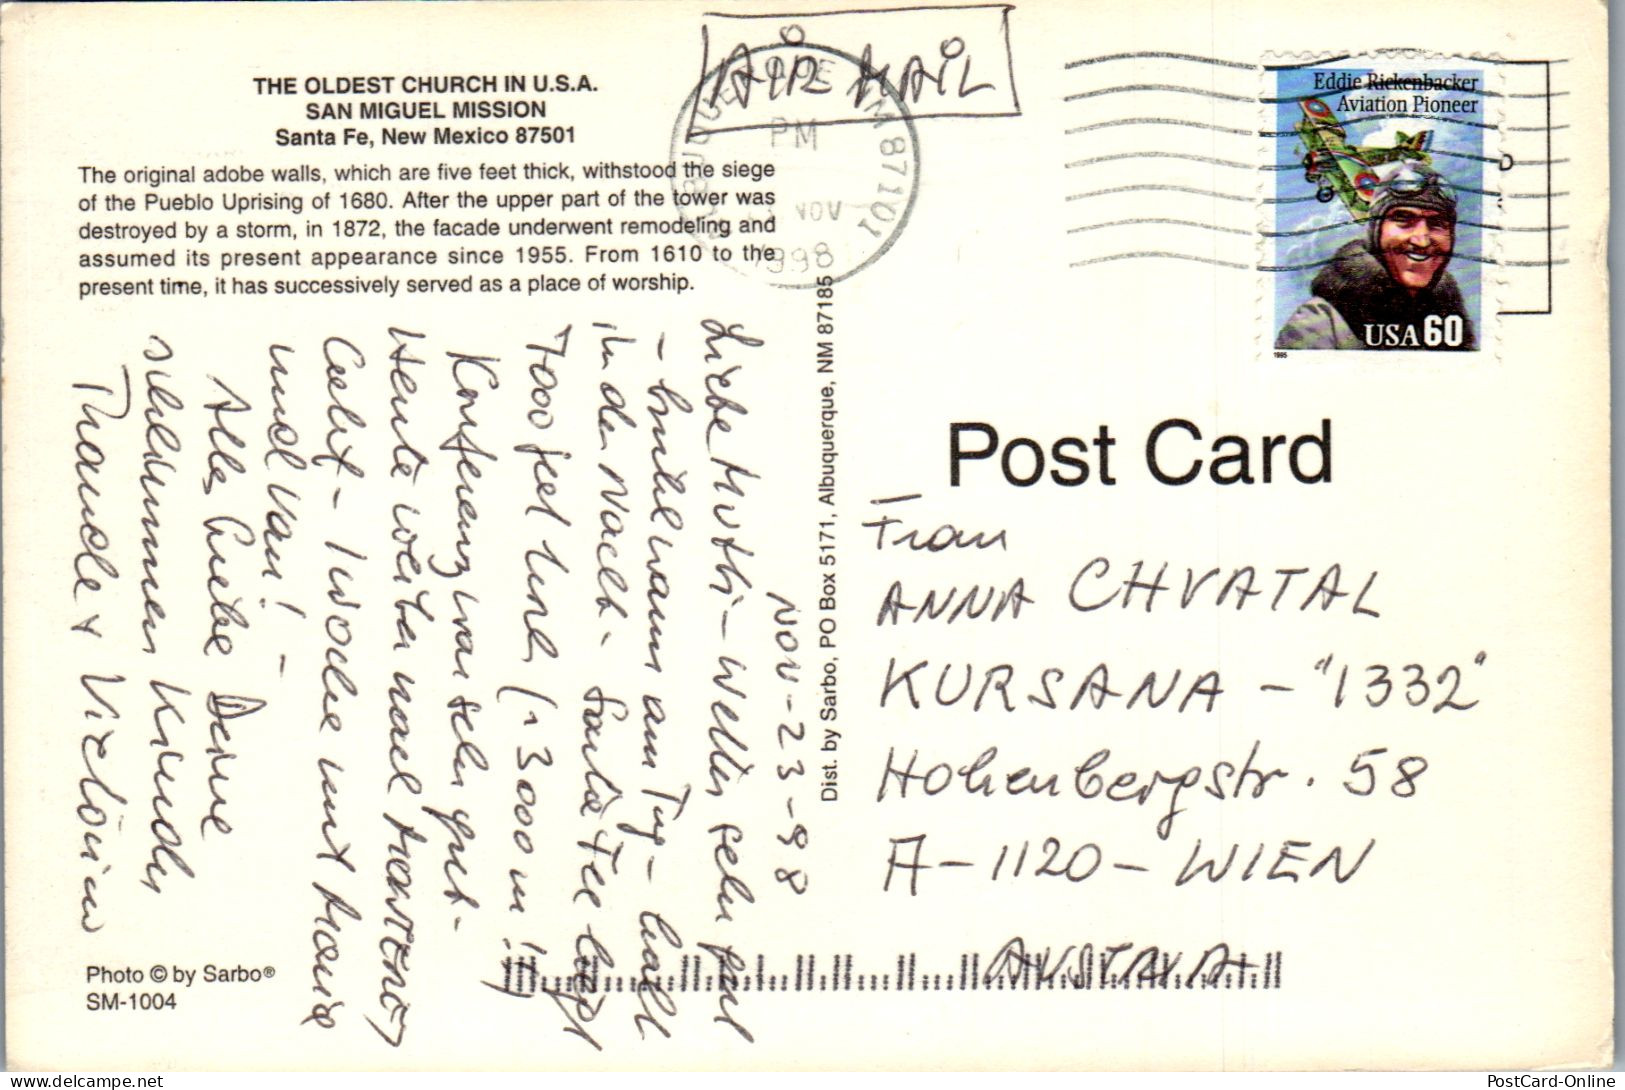 THE OLDEST CHURCH IN U.S.A.
SAN MIGUEL MISSION
Santa Fe, New Mexico 87501
The original adobe walls, which are five feet thick, withstood the siege
of the Pueblo Uprising of 1680. After the upper part of the tower was
destroyed by a storm, in 1872, the facade underwent remodeling and
assumed its present appearance since 1955. From 1610 to the
present time, it has successively served as a place of worship.
AIR MAIL
ALBUQUERQUE NM 87101
PM
NOV
1998
Eddie Rickenbacker
Aviation Pioneer
USA 60
1995
NOV-23-98
Liebe Mutti - Wetter sehr
- warm am Tag - kalt
in der Nacht - Santa Fee liegt
7000 feet hoch (~3000 m!)
Konferenz war sehr gut -
Heute weiter nach
- 1 Woche mit
und Van! -
Alles Liebe Deine
schlimmen Kinder
Dist. by Sarbo, PO Box 5171, Albuquerque, NM 87185
Post Card
Frau
ANNA CHVATAL
KURSANA - "1332"
Hohenbergstr. 58
A-1120-WIEN
AUSTRIA
Photo © by Sarbo®
SM-1004
PostCard-Online
delcampe.net